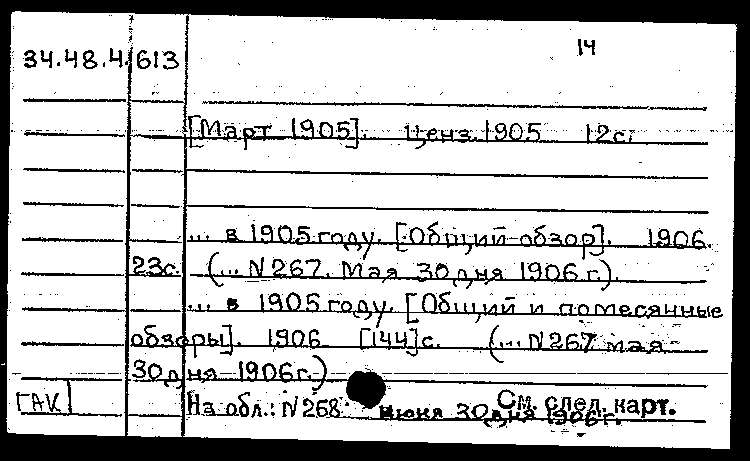 34.48.4/613 14
[Март 1905]. Ценз. 1905 12с.
... в 1905 году. [Общий обзор]. 1906.
23с. (... N 267. Мая 30 дня 1906 г.).
... в 1905 году. [Общий и помесячные
обзоры]. 1906 [144] с. (... N 267 мая
30 дня 1906 г.)
ГАК На обл.: N 268 июня 30 дня 1906 г.
См. след. карт.